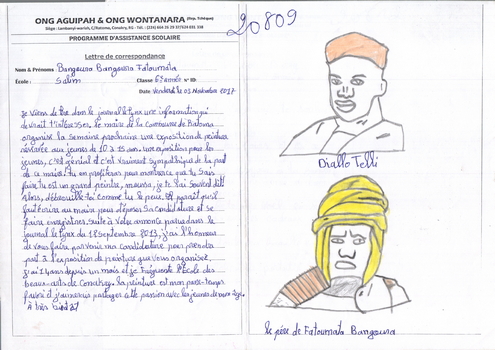 ONG AGUIPAH & ONG WONTANARA (Dép. Télépac)
PROGRAMME D'ASSISTANCE SCOLAIRE
20809
Lettre de correspondance
Nom & Prénoms Bangoura Bangoura Fatoumata
École : Salim Classe 6e année N° ID:
Date Vendredi le 03 Novembre 2017
Je viens de lire dans le journal le Lynx une information qui
devrait t'intéresser, le maire de la commune de Ratoma
organise la semaine prochaine une exposition de peinture
réservée aux jeunes de 10 à 15 ans. une exposition pour les
jeunes, c'est génial et c'est vraiment sympathique de la part
de ce maire! tu en profiteras pour montrer ce que tu sais
faire, tu est un grand peintre, je te l'ai souvent dit!
Alors, débrouille-toi comme tu le peux. Il paraît qu'il
faut écrire au maire pour déposer sa candidature et se
faire enregistrer, suite à votre annonce parue dans le
journal le Lynx du 18 septembre 2013, j'ai l'honneur
de vous faire parvenir ma candidature pour prendre
part à l'exposition de peinture que vous organisez,
j'ai 14 ans depuis un mois et je fréquente l'école des
beaux-arts de Conakry. La peinture est mon passe-temps
favori et j'aimerais partager cette passion avec les jeunes de mon âge.
À très bientôt
Diallo Telli
le père de Fatoumata Bangoura